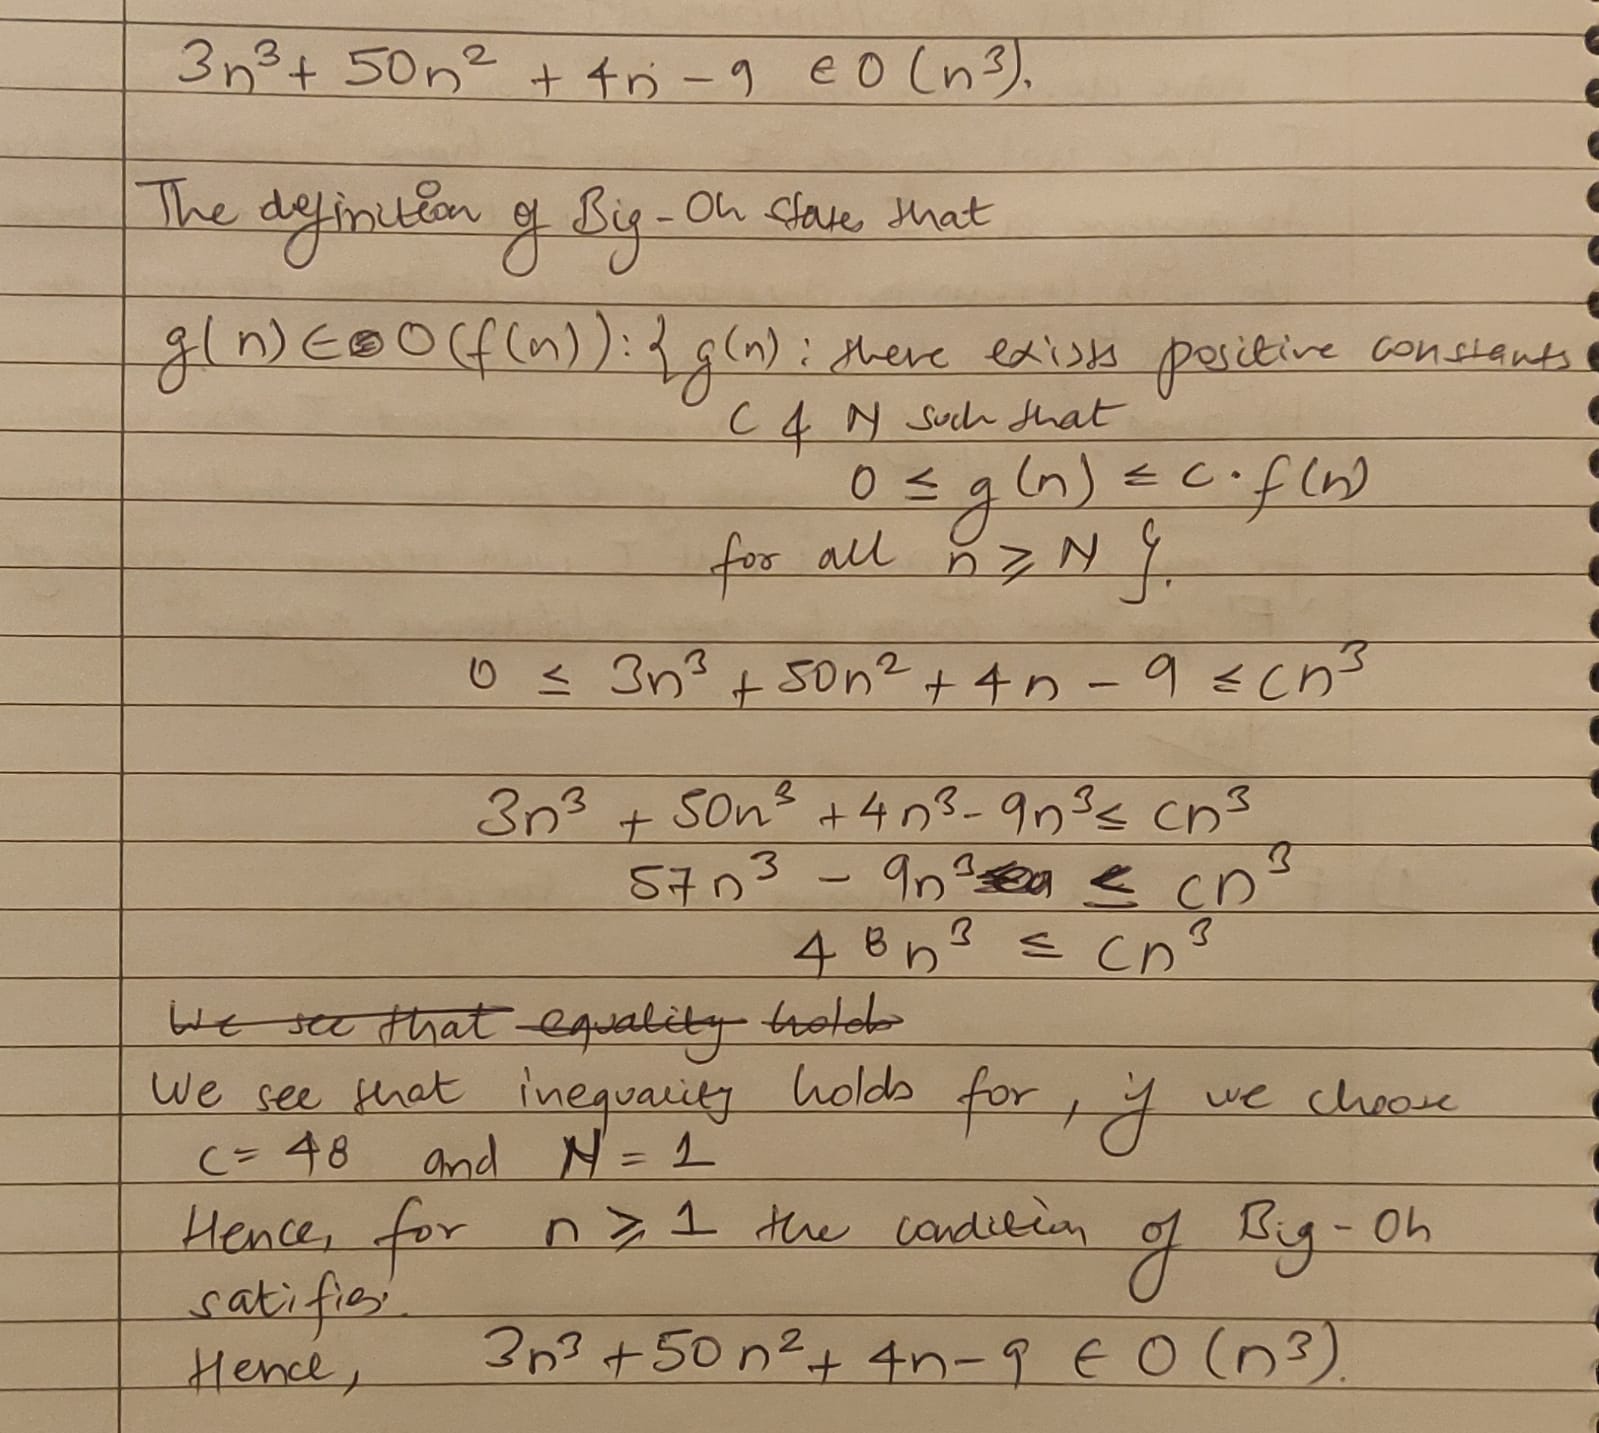 3n³ + 50n² + 4n - 9 ∈ O(n³).
The definition of Big-Oh states that
g(n) ∈ O(f(n)) : { g(n) : there exists positive constants
C & N such that
0 ≤ g(n) ≤ c·f(n)
for all n ≥ N }.
0 ≤ 3n³ + 50n² + 4n - 9 ≤ cn³
3n³ + 50n³ + 4n³ - 9n³ ≤ cn³
57n³ - 9n³ ≤ cn³
48n³ ≤ cn³
We see that equality holds
We see that inequality holds for, if we choose
c = 48 and N = 1
Hence, for n ≥ 1 the condition of Big-Oh
satifies.
Hence, 3n³ + 50n² + 4n - 9 ∈ O(n³).